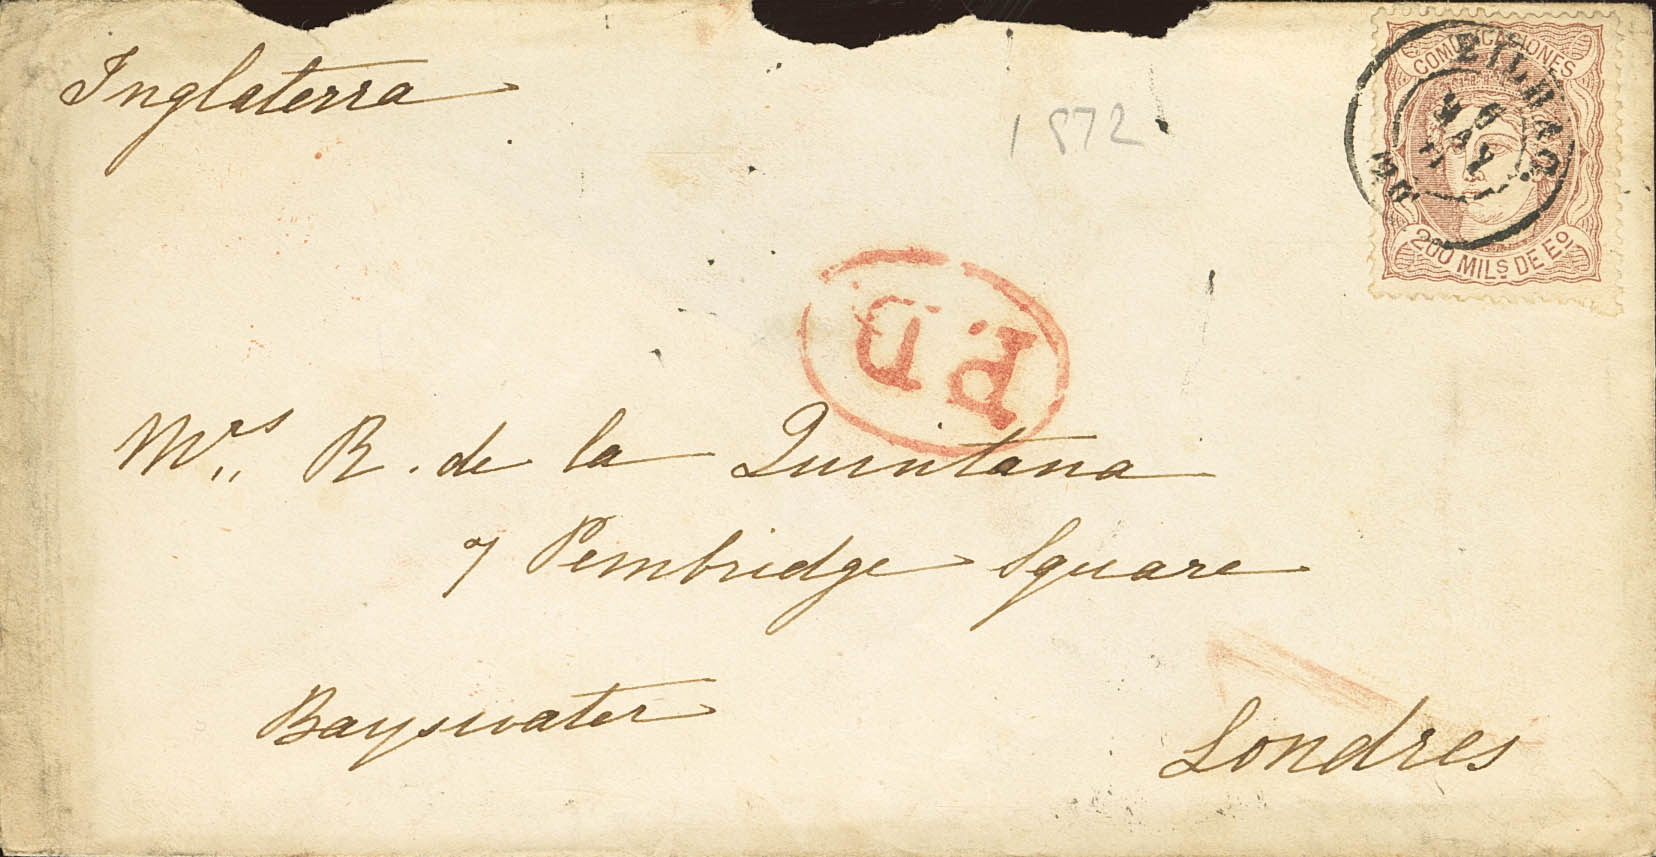 Inglaterra
1872
COMUNICACIONES
BILBAO
MAY
200 MILS DE EO
P.D.
Mrs R. de la Quintana
7 Pembridge Square
Bayswater
Londres